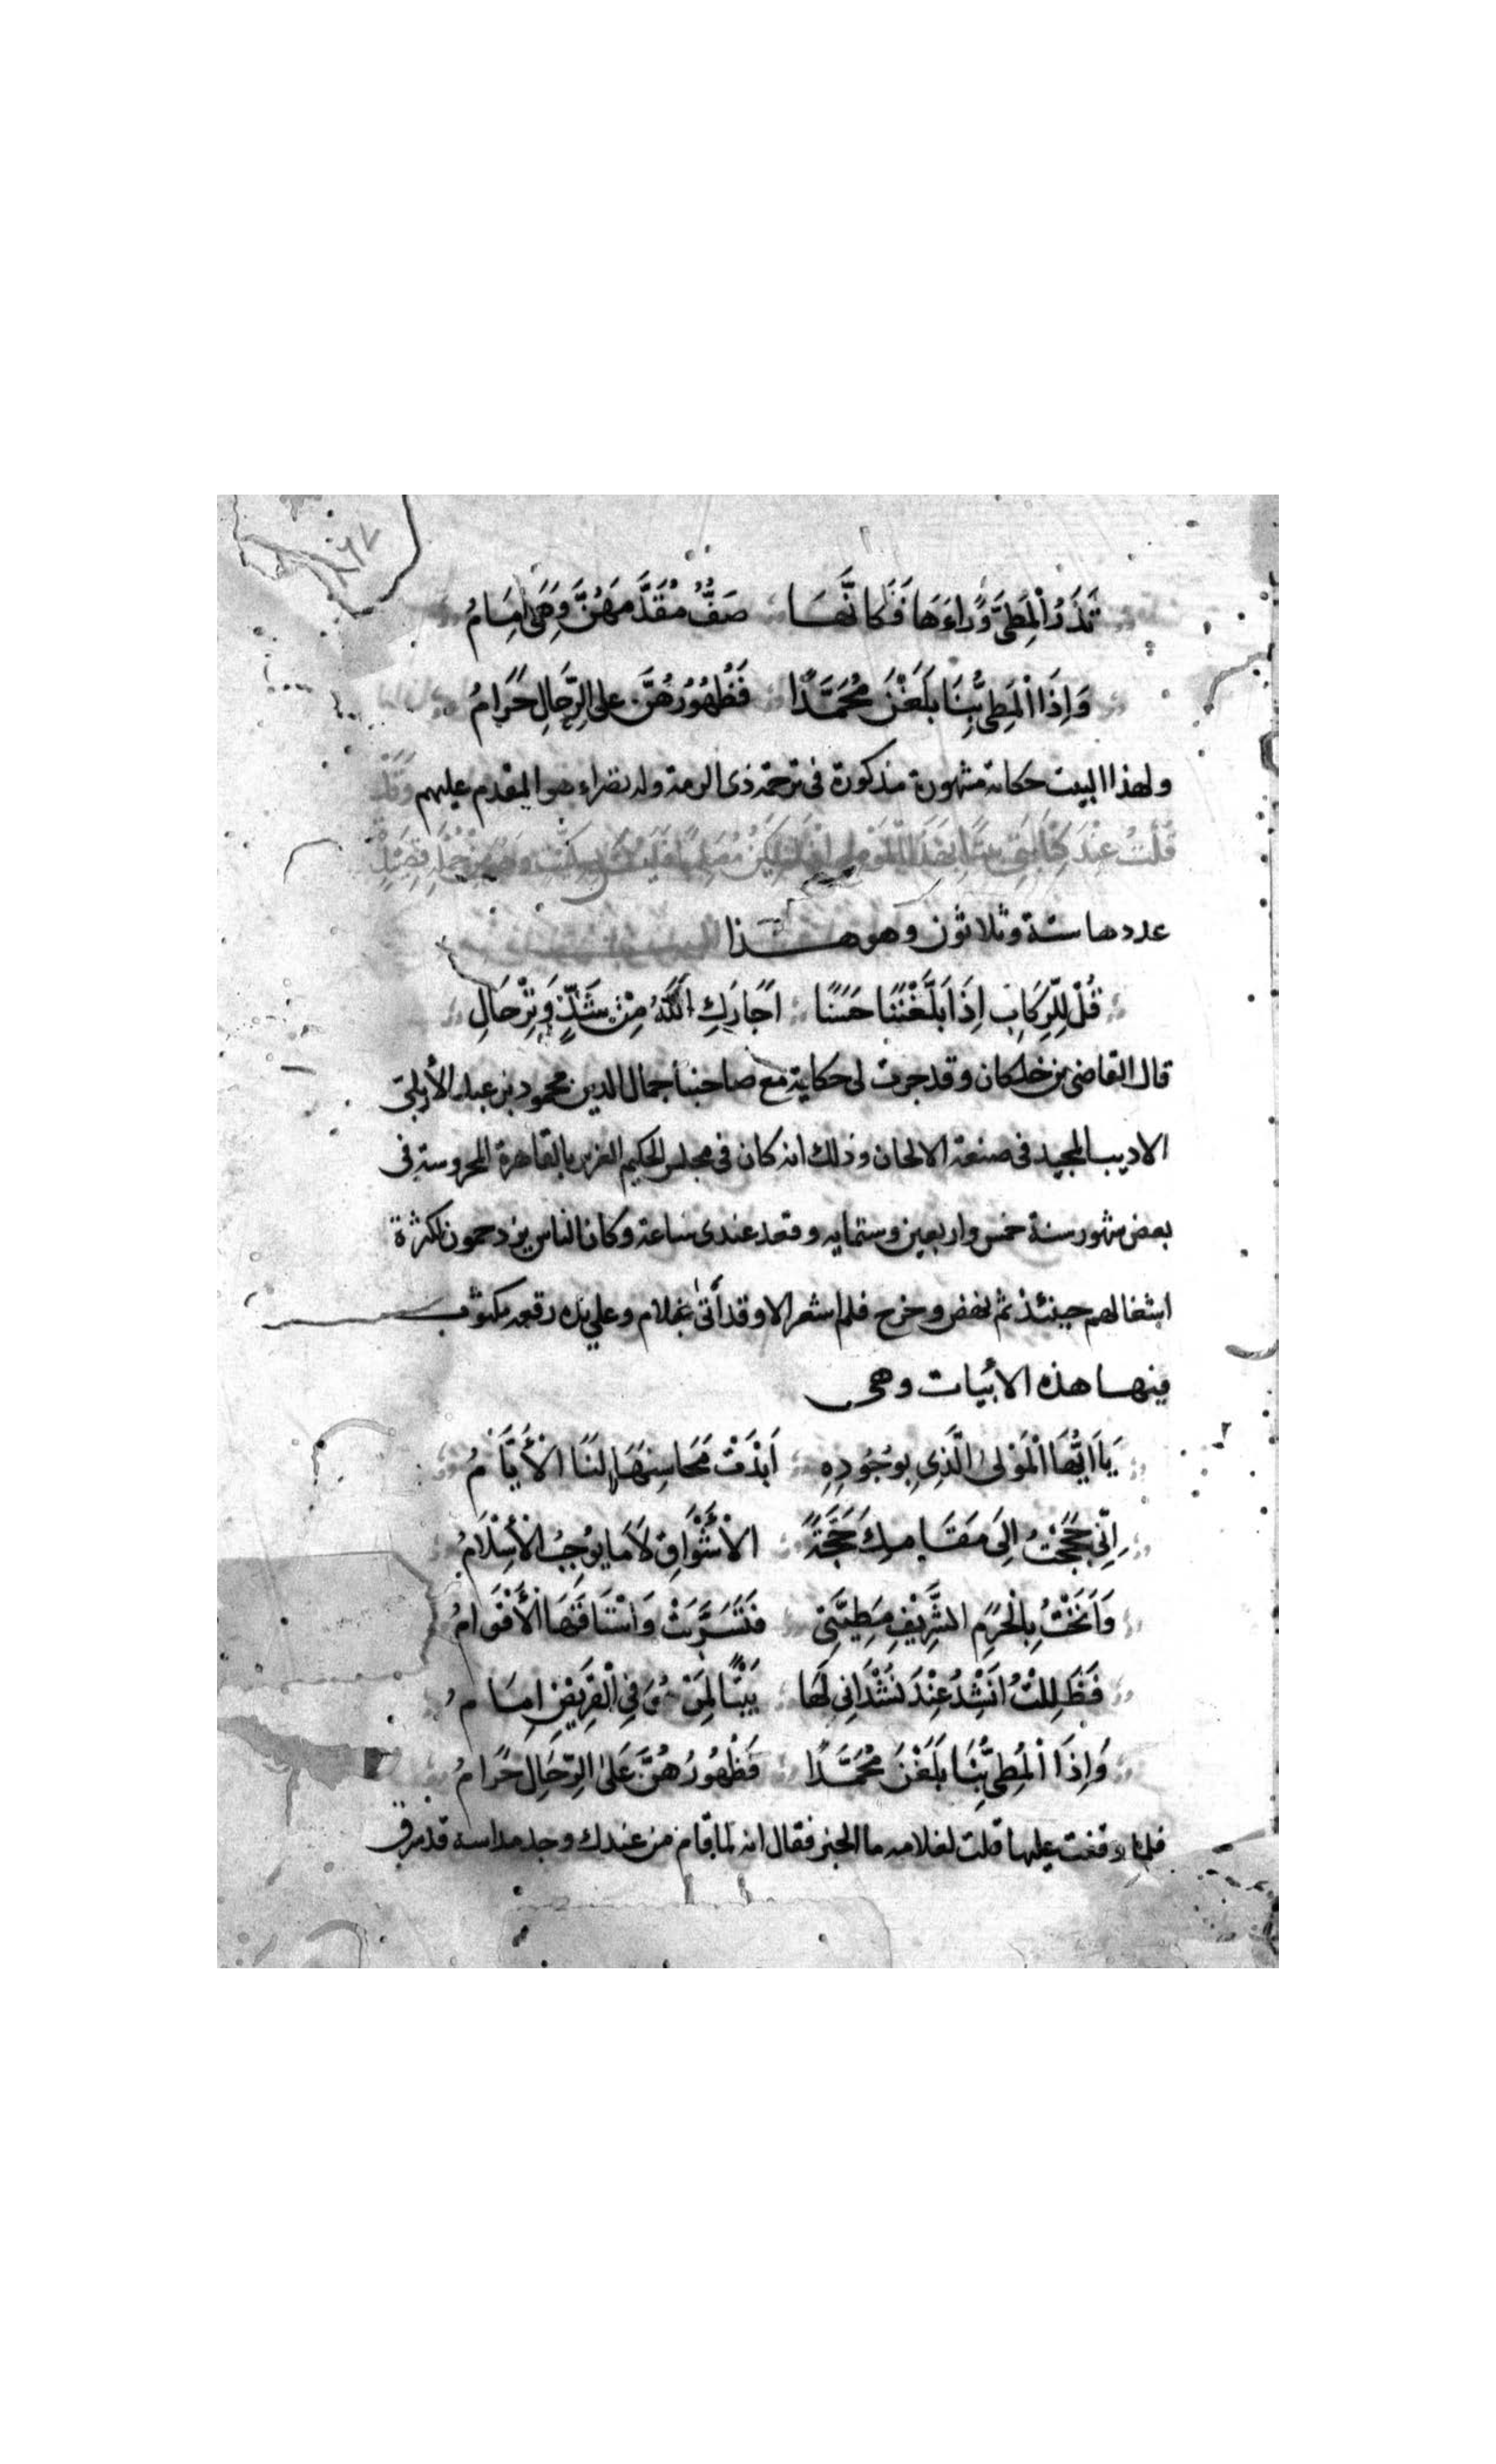 ٦٧
تَذَرُ الْمَطِيَّ وَرَاءَهَا فَكَأَنَّهَا صَفٌّ مُقَدَّمَهُنَّ وَهْيَ اِمَامُ
وَاِذَا الْمَطِيُّ بِنَا بَلَغْنَ مُحَمَّدًا فَظُهُورُهُنَّ عَلَى الرِّجَالِ حَرَامُ
ولهذا البيت حكاية مشهورة مذكورة فى ترجمة ذى الرمة وله نضراء هو المقدم عليهم وَقَدْ
قُلْتُ عِنْدَ
عددها ستة وثلاثون وهو هذا
قُلْ لِلرِّكَابِ اِذَا بَلَّغْتَنَا حَسَنًا اَجَارَكِ اللَّهُ مِنْ شَدٍّ وَتِرْحَالِ
قال القاضى بن خلكان وقد جرت لى حكاية مع صاحبنا جمال الدين محمود بن عبد الأربلى
الاديب المجيد فى صنعة الالحان وذلك انه كان فى مجلس الحكيم العزيز بالقاهرة المحروسة فى
بعض شهور سنة خمس واربعين وستمايه وقعد عندى ساعة وكان الناس يزدحمون لكثرة
اشغالهم حينئذ ثم نهض وخرج فلم اشعر الا وقد أتى غلام وعلى يده رقعه مكتوب
فيها هذه الأبيات وهى
يَا اَيُّهَا الْمَوْلى الَّذِى بِوُجُودِهِ اَبْدَتْ مَحَاسِنَهَا لَنَا الأَيَّامُ
اِنِّى حَجَجْتُ اِلَى مَقَامِكَ حَجَّةً الأَشْوَاقِ لَا مَا يُوجِبُ الْأِسْلَامُ
وَاَنَخْتُ بِالْحَرَمِ الشَّرِيْفِ مَطِيَّتِى فَتَسَرَّبَتْ وَاسْتَاقَهَا الأَقْوَامُ
فَظَلِلْتُ اُنْشِدُ عِنْدَ نُشْدَانِى لَهَا بَيْتًا لِمَنْ هُوَ فِى الْقَرِيْضِ اِمَامُ
وَاِذَا الْمَطِيُّ بِنَا بَلَغْنَ مُحَمَّدًا فَظُهُورُهُنَّ عَلَى الرِّجَالِ حَرَامُ
فلما وقفت عليها قلت لغلامه ما الخبر فقال انه لما قام من عندك وجد مداسه قد سرق